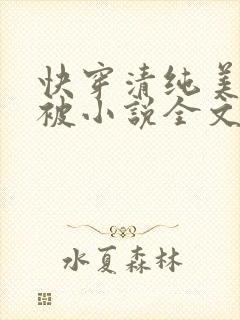 快穿清纯美
被小说全文
水夏森林